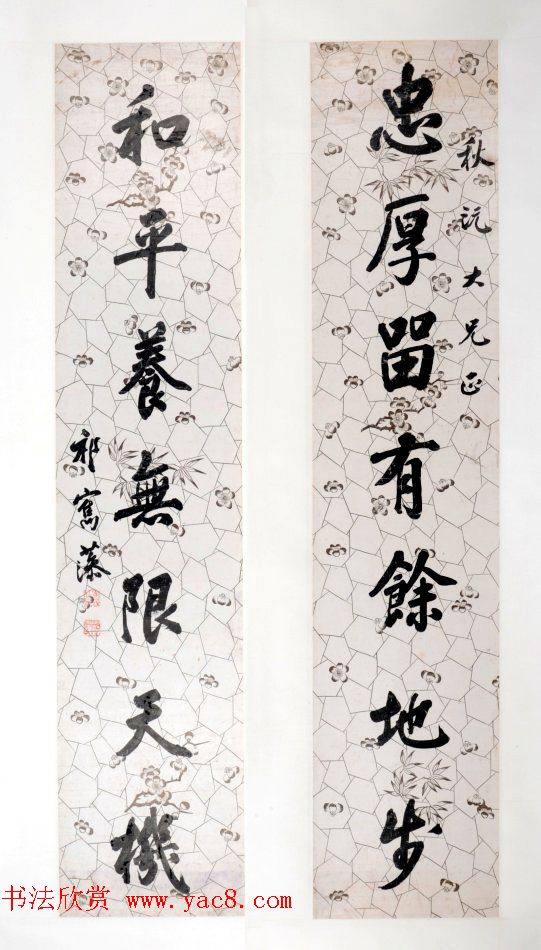 忠厚留有餘地步
秋沅大兄正
和平養無限天機
祁寯藻
书法欣赏 www.yac8.com